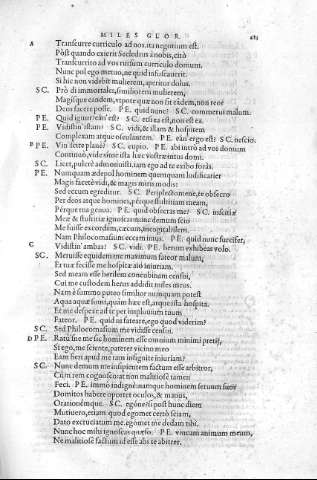 MILES GLOR.
A Transcurre curriculo ad nos, ita negotium est.
Post quando exierit Sceledrus à nobis, citò
Transcurrito ad vos rursum curriculo domum.
Nunc pol ego metuo, ne quid infuscauerit.
Si hic non videbit mulierem, aperitur dolus.
SC. Prò di immortales, similiorem mulierem,
Magisque eandem, vt pote quæ non sit eadem, non reor
Deos facere posse. PE. quid nunc? SC. commerui malum.
PE. Quid igitur? ean' est? SC. etsi ea est, non est ea.
PE. Vidistin' istam? SC. vidi, & illam & hospitem
Complexam atque osculantem. PE. ean' ergo est? SC. nescio.
B PE. Vin' scire planè? SC. cupio. PE. abi intrò ad vos domum
Continuò, vide sitne ista hæc vostra intus domi.
SC. Licet, pulchrè admonuisti. iam ego ad te exibo foràs.
PE. Nunquam ædepol hominem quenquam ludificarier
Magis facetè vidi, & magis miris modis
Sed eccum egreditur. SC. Periplectomene, te obsecro
Per deos atque homines, pérque stultitiam meam,
Pérque tua genua. PE. quid obsecras me? SC. inscitiæ
Meæ & stultitiæ ignoscas. nunc demum scio
Me fuisse excordem, cæcum, incogitabilem.
Nam Philocomasium eccam intus. PE. quid nunc furcifer,
C Vidistin' ambas? SC. vidi. PE. herum exhibeas volo.
SC. Meruisse equidem me maximum fateor malum,
Et tuæ fecisse me hospitæ aio iniuriam.
Sed meam esse herilem concubinam censui,
Cui me custodem herus addidit miles meus.
Nam è summo puteo similior nunquam potest
Aqua aquæ sumi, quàm hæc est, atque ista hospita.
Et me despexe ad te per impluuium tuum
Fateor. PE. quid ni fateare, ego quod viderim?
SC. Sed Philocomasium me vidisse censui.
D PE. Ratu'sne me sic hominem esse omnium minimi pretij,
Si ego, me sciente, paterer vicino meo
Eam fieri apud me tam insignite iniuriam?
SC. Nunc demum me insipienter factum esse arbitror,
Cùm rem cognosco: at non malitiosè tamen
Feci. PE. immò indignè. namque hominem seruum suos
Domitos habere oportet oculos, & manus,
Orationémque. SC. egóne si post hunc diem
Mutiuero, etiam quod egomet certò sciam,
Dato excruciatum me. egomet me dedam tibi.
Nunc hoc mihi ignoscas quæso. PE. vincam animum meum,
Ne malitiosè factum id esse abs te arbitrer.